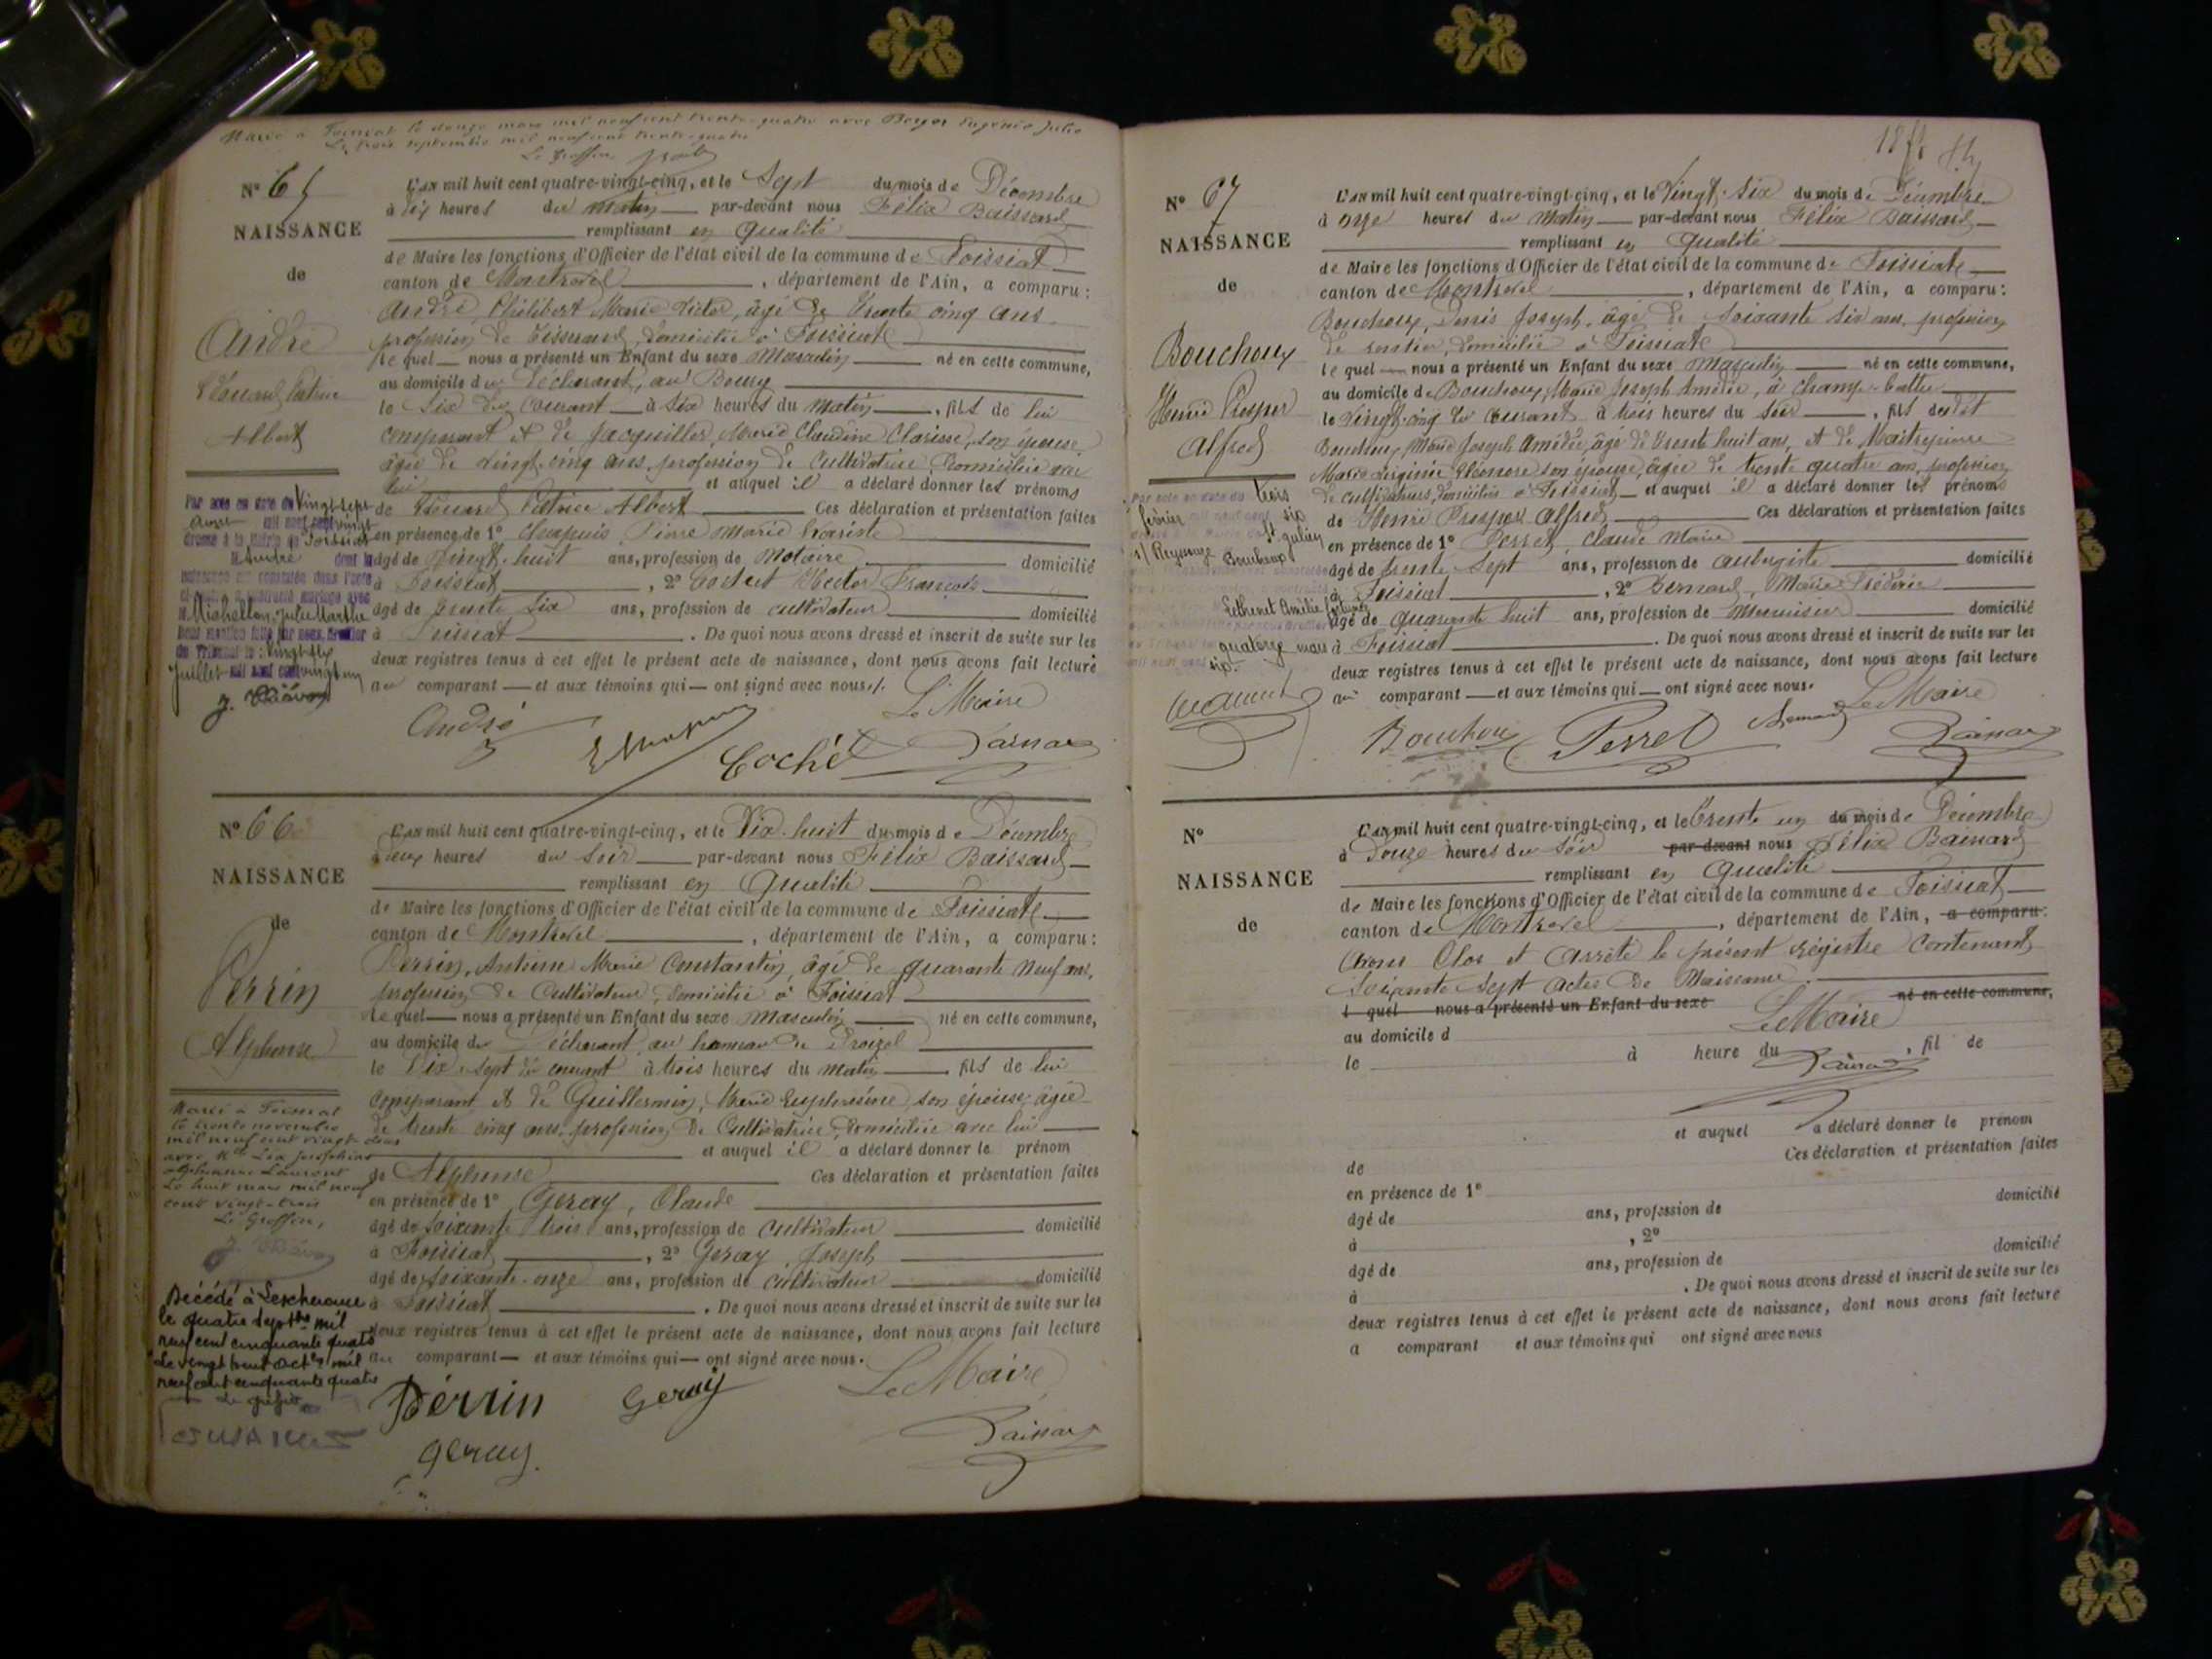 Marié à Foissiat le douze mars mil neuf cent trente-quatre avec Berger Eugénie Julie
Le trois septembre mil neuf cent trente-quatre
Le Greffier
N° 65
NAISSANCE
de
André
Edouard Patrice
Albert
L'an mil huit cent quatre-vingt-cinq, et le Sept du mois de Décembre
à dix heures du matin par-devant nous Félix Baissard
remplissant en qualité
de Maire les fonctions d'Officier de l'état civil de la commune de Foissiat
canton de Montrevel, département de l'Ain, a comparu:
André, Philibert Marie Victor, âgé de Trente cinq ans
profession de Tisserand, domicilié à Foissiat
lequel nous a présenté un Enfant du sexe Masculin né en cette commune,
au domicile du Déclarant, au Bourg
le Six du courant à six heures du matin, fils de lui
comparant et de Jacquiller, Marie Claudine Clarisse, son épouse
âgée de vingt-cinq ans, profession de Cultivatrice Domiciliée avec
lui et auquel il a déclaré donner les prénoms
de Edouard Patrice Albert Ces déclaration et présentation faites
en présence de 1° Chapuis, Pierre Marie
âgé de Vingt-huit ans, profession de Notaire domicilié
à Foissiat, 2° Cochet Hector François
âgé de trente six ans, profession de cultivateur domicilié
à Foissiat. De quoi nous avons dressé et inscrit de suite sur les
deux registres tenus à cet effet le présent acte de naissance, dont nous avons fait lecture
au comparant et aux témoins qui ont signé avec nous.
Par acte en date du Vingt sept
mil neuf cent vingt
dressé à la Mairie de Foissiat
M. André dont la
naissance est constatée dans l'acte
a contracté mariage avec
Mlle Michellon, Julie Marthe
Dont mention faite par nous, Greffier
du Tribunal le: Vingt
Juillet mil neuf cent vingt un
André
Cochet
Le Maire
Baissard
N° 66
NAISSANCE
de
Perrin
Alphonse
L'an mil huit cent quatre-vingt-cinq, et le Dix-huit du mois de Décembre
à deux heures du soir par-devant nous Félix Baissard
remplissant en qualité
de Maire les fonctions d'Officier de l'état civil de la commune de Foissiat
canton de Montrevel, département de l'Ain, a comparu:
Perrin, Antoine Marie Constantin, âgé de quarante neuf ans,
profession de Cultivateur, domicilié à Foissiat
lequel nous a présenté un Enfant du sexe Masculin né en cette commune,
au domicile du Déclarant, au hameau de
le Dix-sept du courant à trois heures du matin fils de lui
comparant et de Guillermin, Marie Euphrosine, son épouse, âgée
de trente cinq ans, profession de Cultivatrice, domiciliée avec lui
et auquel il a déclaré donner le prénom
de Alphonse Ces déclaration et présentation faites
en présence de 1° Geray, Claude
âgé de soixante trois ans, profession de cultivateur domicilié
à Foissiat, 2° Geray, Joseph
âgé de soixante-onze ans, profession de cultivateur domicilié
à Foissiat. De quoi nous avons dressé et inscrit de suite sur les
deux registres tenus à cet effet le présent acte de naissance, dont nous avons fait lecture
au comparant et aux témoins qui ont signé avec nous.
Marié à Foissiat
le trente novembre
mil neuf cent vingt-deux
avec Mlle Léa Joséphine
Laurent
Le huit mars mil neuf
cent vingt-trois
Le Greffier,
Décédé à Lescheroux
le quatre septbre mil
neuf cent cinquante quatre
Le vingt huit octe mil
neuf cent cinquante quatre
Le greffier
Perrin
Geray
Le Maire
Geray
Baissard
N° 67
NAISSANCE
de
Bouchoux
Henri Prosper
Alfred
L'an mil huit cent quatre-vingt-cinq, et le Vingt-six du mois de Décembre
à onze heures du Matin par-devant nous Félix Baissard
remplissant en qualité
de Maire les fonctions d'Officier de l'état civil de la commune de Foissiat
canton de Montrevel, département de l'Ain, a comparu:
Bouchoux, Denis Joseph, âgé de soixante six ans, profession
de rentier, domicilié à Foissiat
lequel nous a présenté un Enfant du sexe Masculin né en cette commune,
au domicile de Bouchoux, Marie Joseph Amédée, à Champ
le Vingt-cinq du courant à trois heures du soir, fils dudit
Bouchoux, Marie Joseph Amédée, âgé de trente huit ans, et de Maitrejeune
Marie Virginie Eléonore son épouse, âgée de trente quatre ans, profession
de cultivateurs, domiciliés à Foissiat et auquel il a déclaré donner les prénoms
de Henri Prosper Alfred Ces déclaration et présentation faites
en présence de 1° Perret, Claude Marie
âgé de trente-sept ans, profession de aubergiste domicilié
à Foissiat, 2° Bernard, Marie Frédéric
âgé de quarante huit ans, profession de Menuisier domicilié
à Foissiat. De quoi nous avons dressé et inscrit de suite sur les
deux registres tenus à cet effet le présent acte de naissance, dont nous avons fait lecture
au comparant et aux témoins qui ont signé avec nous.
trois
février
six
St Julien
s/ Reyssouze
Bouchoux
Lethenet Amélie
quatorze mars
six
Bouchoux
Perret
Bernard
Le Maire
Baissard
N°
NAISSANCE
de
L'an mil huit cent quatre-vingt-cinq, et le Trente un du mois de Décembre
à Douze heures du Soir par-devant nous Félix Baissard
remplissant en qualité
de Maire les fonctions d'Officier de l'état civil de la commune de Foissiat
canton de Montrevel, département de l'Ain, a comparu:
Avons Clos et Arrêté le présent régistre Contenant
Soixante Sept actes de Naissance.
l quel nous a présenté un Enfant du sexe né en cette commune,
au domicile d Le Maire
le à heure du, fil de
Baissard
et auquel a déclaré donner le prénom
de Ces déclaration et présentation faites
en présence de 1°
âgé de ans, profession de domicilié
à, 2°
âgé de ans, profession de domicilié
à. De quoi nous avons dressé et inscrit de suite sur les
deux registres tenus à cet effet le présent acte de naissance, dont nous avons fait lecture
a comparant et aux témoins qui ont signé avec nous